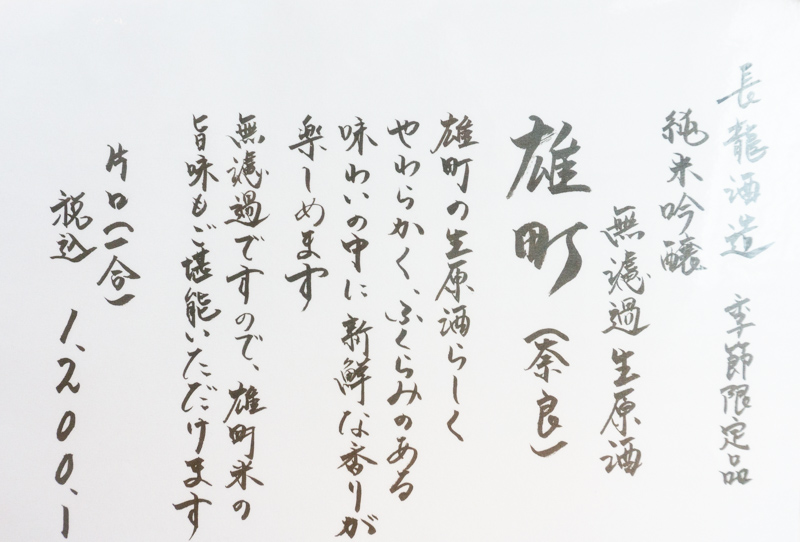 長龍酒造 季節限定品
純米吟醸
無濾過生原酒
雄町(奈良)
雄町の生原酒らしく
やわらかく、ふくらみのある
味わいの中に新鮮な香りが
楽しめます
無濾過ですので、雄町米の
旨味もご堪能いただけます
片口(一合)
税込 1,200.-